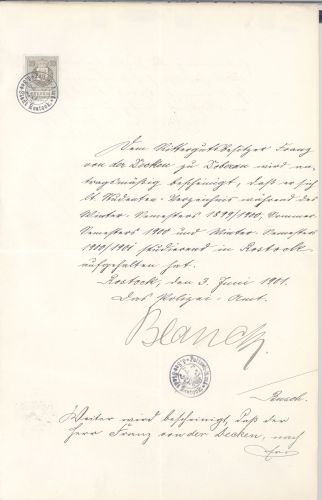 Dem Rittergutsbesitzer Franz
von der Decken zu Doberan wird an-
tragsmäßig bescheinigt, daß er sich
lt. Studenten-Verzeichniß während des
Winter-Semesters 1899/1900, Sommer-
Semesters 1900 und Winter-Semesters
1900/1901 studierend in Rostock
aufgehalten hat.
Rostock, den 3. Juni 1901.
Das Polizei-Amt.
Blanck
Weiter wird bescheinigt, daß der
Herr Franz von der Decken, nach